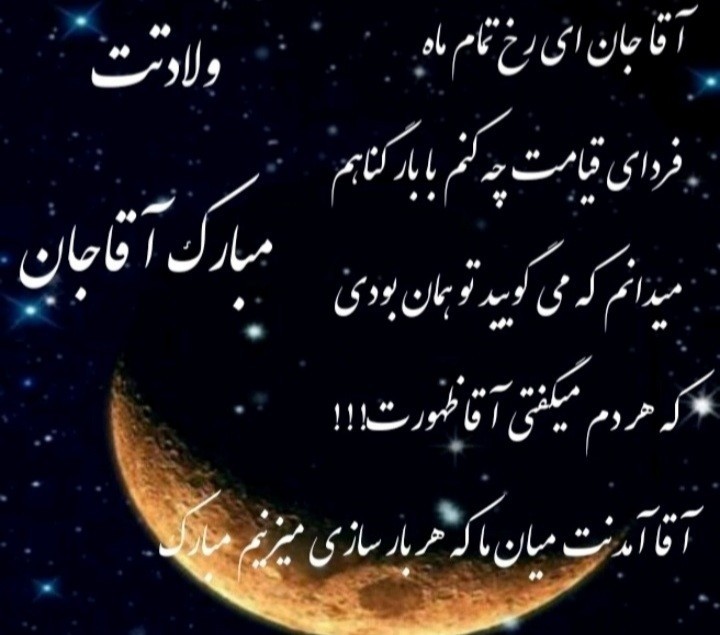 آقا جان ای رخ تمام ماه
فردای قیامت چه کنم با بار گناهم
میدانم که می گویید تو همان بودی
که هر دم میگفتی آقا ظهورت!!!
آقا آمدنت میان ما که هر بار سازی میزنیم مبارک
ولادتت
مبارک آقا جان